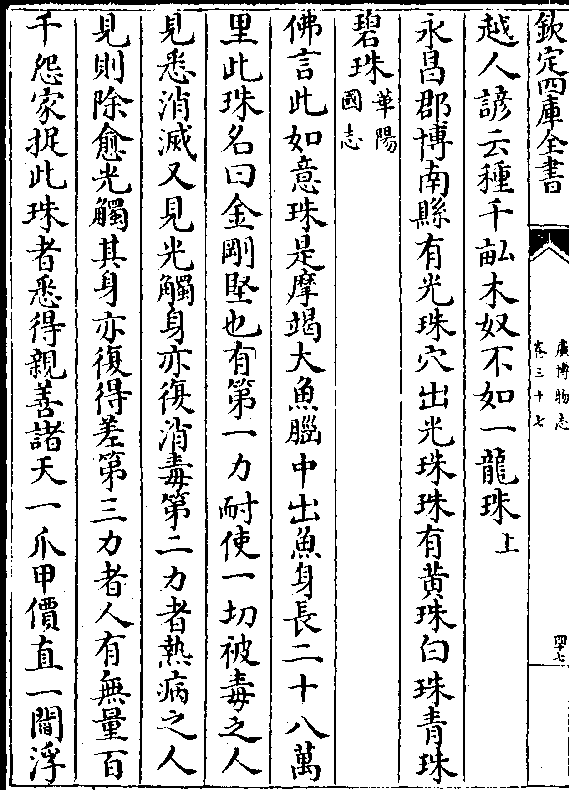 欽定四庫全書
廣博物志
卷三十七
四七
越人諺云種千畝木奴不如一龍珠上
永昌郡博南縣有光珠穴出光珠珠有黄珠白珠青珠
碧珠華陽國志
佛言此如意珠是摩竭大魚腦中出魚身長二十八萬
里此珠名曰金剛堅也有第一力耐使一切被毒之人
見悉消滅又見光觸身亦復消毒第二力者熱病之人
見則除愈光觸其身亦復得差第三力者人有無量百
千怨家捉此珠者悉得親善諸天一爪甲價直一閻浮